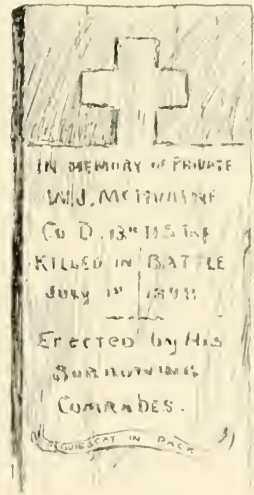 IN MEMORY OF PRIVATE
W.J. McILWAINE
Co D. 13th U.S INF
KILLED IN BATTLE
JULY 1st 1898
Erected by His
SURVIVING
COMRADES.
REQUIESCAT IN PACE